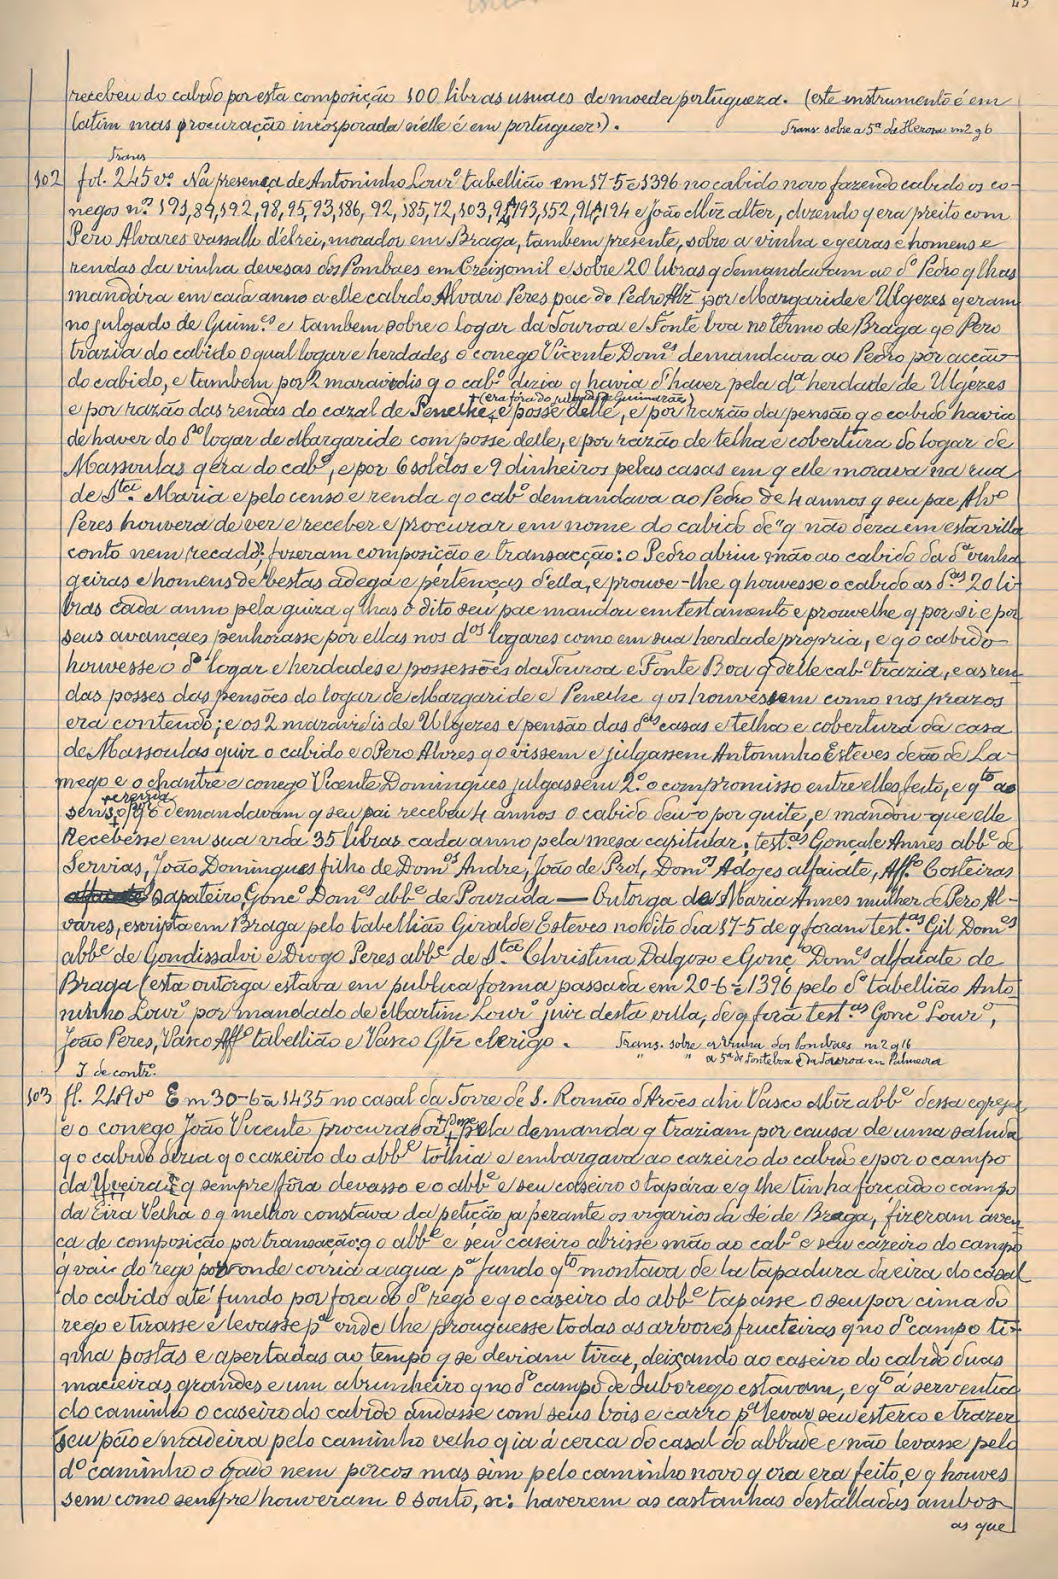 recebeu do cabido por esta composição 100 libras usuaes de moeda portugueza. (este instrumento é em
latim mas procuração incorporada n'elle é em portuguez).
Trans. sobre a 5ª de m2 g6
Trans
102 fol. 245 vº. Na presença de Antoninho Lourº tabellião em 17-5-ē1396 no cabido novo fazendo cabido os co-
negos nº 191, 89, 192, 98, 95, 93, 186, 92, 185, 72, 103, 193, 152, 194 e João Miz alter, dizendo q era preito com
Pero Alvares vassallo d'elrei, morador em Braga, tambem presente, sobre a vinha e geiras e homens e
rendas da vinha devesas dos Pombaes em Creixomil e sobre 20 libras q demandavam ao dº Pedro q lhas
mandára em cada anno a elle cabido Alvaro Peres pae do Pedro Alz por Margaride e Ulgezes q eram
no julgado de Guimes e tambem sobre o logar da Touroa e Fonte boa no termo de Braga q o Pero
trazia do cabido o qual logar e herdades o conego Vicente Domes demandava ao Pedro por acção
do cabido, e tambem por 2 maravidis q o cabº dizia q havia d'haver pela dª herdade de Ulgezes
(era fóra do julgado de Guimarães)
e por razão das rendas do cazal de Penelhe, e posse delle, e por razão da pensão q o cabido havia
de haver do dº logar de Margaride com posse delle, e por razão de telha e cobertura do logar de
Massoulas q era do cabº, e por 6 soldos e 9 dinheiros pelas casas em q elle morava na rua
de Sta Maria e pelo censo e renda q o cabº demandava ao Pedro de 4 annos q seu pae Alvº
Peres houvera de ver e receber e procurar em nome do cabido de q não dera em esta villa
conto nem recado; fizeram composição e transacção: o Pedro abriu mão ao cabido da dª vinha
geiras e homens de bestas adega e pertenças d'ella, e prouve-lhe q houvesse o cabido as das 20 li-
bras cada anno pela guiza q lhas o dito seu pae mandou em testamento e prouvelhe q por si e por
seus avançaes penhorasse por ellas nos dos logares como em sua herdade propria, e q o cabido
houvesse o dº logar e herdades e possessões da Touroa e Fonte Boa q delle cabº trazia, e as ren-
das posses das pensões do logar de Margaride e Penelhe q os houvessem como nos prazos
era contendo; e os 2 maravidis de Ulgezes e pensão das das casas e telha e cobertura da casa
de Massoulas quir o cabido e o Pero Alvres q o vissem e julgassem Antoninho Esteves deão de La-
mego e o chantre e conego Vicente Domingues julgassem 2º o compromisso entre elles feito, e qto ao
censo q o demandavam q seu pai recebeu 4 annos o cabido deu-o por quite, e mandou que elle
Recebesse em sua vida 35 libras cada anno pela mesa capitular; testas Gonçalo Annes abbe de
Servias, João Domingues filho de Domos Andre, João de Prol, Domos Adozes alfaiate, Affº Costeiras
sapateiro, Goncº Domes abbe de Pouzada — Outorga da Maria Annes mulher de Pero Al-
vares, escripta em Braga pelo tabellião Giraldo Esteves no dito dia 17-5 de q foram testas Gil Domes
abbe de Gondissalvi e Diogo Peres abbe de Sta Christina Dalgoso e Gonçº Domes alfaiate de
Braga (esta outorga estava em publica forma passada em 20-6-ē1396 pelo dº tabellião Anto-
ninho Lourº por mandado de Martim Lourº juiz desta villa, de q forā testas Goncº Lourº,
João Peres, Vasco Affº tabellião e Vasco Glz clerigo.
Trans. sobre a vinha dos Pombaes m2 g16
" " a 5ª de Fonteboa e da Touroa em Palmeira
I. de contrº.
103 fl. 249 vº Em 30-6-ē1435 no casal da Torre de S. Romão d'Arões ahi Vasco Miz abbe dessa egreja
e o conego João Vicente procurador pela demanda q traziam por causa de uma sahida
q o cabido dizia q o cazeiro do abbe tolhia e embargava ao cazeiro do cabido e por o campo
da Uveira q sempre fôra devasso e o abbe e seu caseiro o tapára e q lhe tinha forçado o campo
da Eira Velha o q melhor constava da petição ja perante os vigarios da Sé de Braga, fizeram aven-
ça de composição por transação: q o abbe e seu caseiro abrisse mão ao cabº e seu cazeiro do campo
q vai do rego por onde corria a agua pª fundo qto montava de la tapadura da eira do casal
do cabido até fundo por fora do dº rego e q o cazeiro do abbe tapasse o seu por cima do
rego e tirasse e levasse pª onde lhe prouguesse todas as arvores fructeiras q no dº campo ti-
nha postas e apertadas ao tempo q se deviam tirar, deixando ao caseiro do cabido duas
macieiras grandes e um abrunheiro q no dº campo de Suborego estavam, e qto á serventia
do caminho o caseiro do cabido andasse com seus bois e carro pª levar seu esterco e trazer
seu pão e madeira pelo caminho velho q ia á cerca do casal do abbade e não levasse pelo
dº caminho o gado nem porcos mas sim pelo caminho novo q ora era feito, e q houves
sem como sempre houveram o souto, sc: haverem as castanhas destalladas ambos
as que